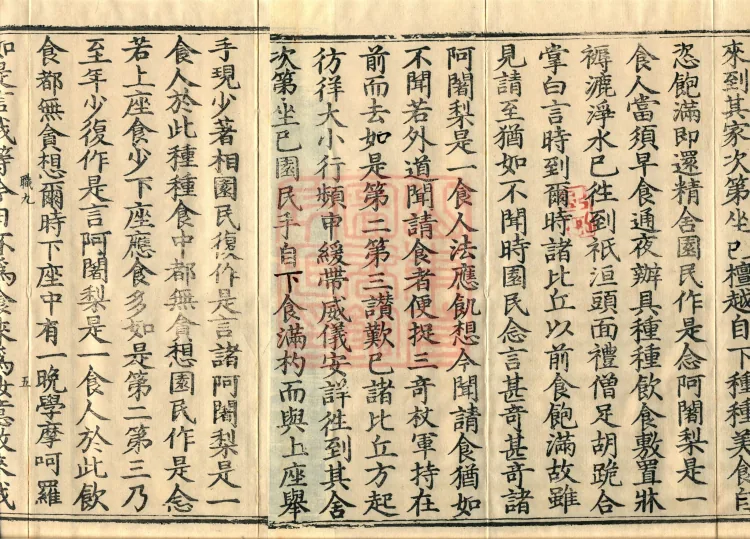 來到其家次第坐已檀越自下種種美食自
恣飽滿即還精舍園民作是念阿闍梨是一
食人當須早食通夜辦具種種飲食敷置牀
褥漉淨水已徃到祇洹頭面禮僧足胡跪合
掌白言時到爾時諸比丘以前食飽滿故雖
見請至猶如不聞時園民念言甚奇甚奇諸
阿闍梨是一食人法應飢想今聞請食猶如
不聞若外道聞請食者便捉三奇杖軍持在
前而去如是第二第三讃歎已諸比丘方起
彷徉大小行頻申緩帶威儀安詳徃到其舍
次第坐已園民手自下食滿杓而與上座舉
手現少著相園民復作是言諸阿闍梨是一
食人於此種種食中都無貪想園民作是念
若上座食少下座應食多如是第二第三乃
至年少復作是言阿闍梨是一食人於此飲
食都無貪想爾時下座中有一晚學摩呵羅
職九
五